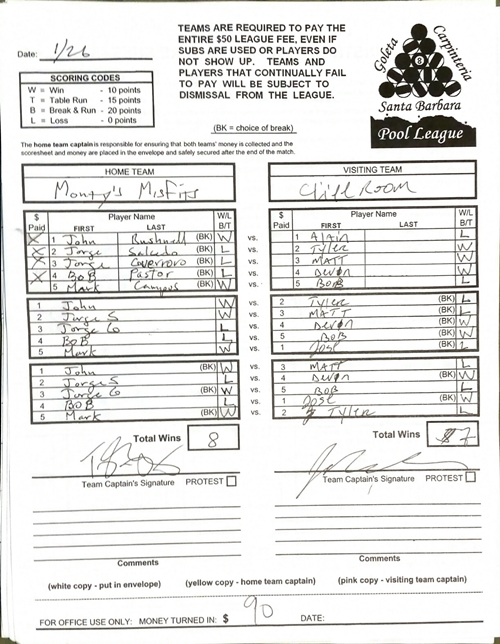 Date: 1/26
TEAMS ARE REQUIRED TO PAY THE
ENTIRE $50 LEAGUE FEE, EVEN IF
SUBS ARE USED OR PLAYERS DO
NOT SHOW UP. TEAMS AND
PLAYERS THAT CONTINUALLY FAIL
TO PAY WILL BE SUBJECT TO
DISMISSAL FROM THE LEAGUE.
(BK = choice of break)
SCORING CODES
W = Win - 10 points
T = Table Run - 15 points
B = Break & Run - 20 points
L = Loss - 0 points
Goleta
Carpinteria
8
Santa Barbara
Pool League
The home team captain is responsible for ensuring that both teams' money is collected and the
scoresheet and money are placed in the envelope and safely secured after the end of the match.
HOME TEAM
Monty's Misfits
VISITING TEAM
Cliff Room
$ Paid Player Name FIRST LAST W/L B/T
X 1 John Bushnell (BK) W vs.
X 2 Jorge Salcedo (BK) L vs.
X 3 Jorge (BK) L vs.
X 4 BoB Pastor (BK) L vs.
5 Mark Campos (BK) W vs.
$ Paid Player Name FIRST LAST W/L B/T
1 Alain L
2 Tyler
3 MATT
4 Devon
5 BoB L
1 John W vs.
2 Jorge S W vs.
3 Jorge G L vs.
4 BoB L vs.
5 Mark W vs.
2 Tyler (BK) L
3 MATT (BK) L
4 Devon (BK) W
5 BoB (BK) W
1 Jose (BK) L
1 John (BK) W vs.
2 Jorge S L vs.
3 Jorge G (BK) W vs.
4 BoB L vs.
5 Mark (BK) W vs.
3 MATT L
4 Devon (BK) W
5 BoB L
1 Jose (BK) W
2 Tyler L
Total Wins 8
Total Wins 7
Team Captain's Signature PROTEST
Team Captain's Signature PROTEST
Comments
Comments
(white copy - put in envelope) (yellow copy - home team captain) (pink copy - visiting team captain)
FOR OFFICE USE ONLY: MONEY TURNED IN: $ 90 DATE: